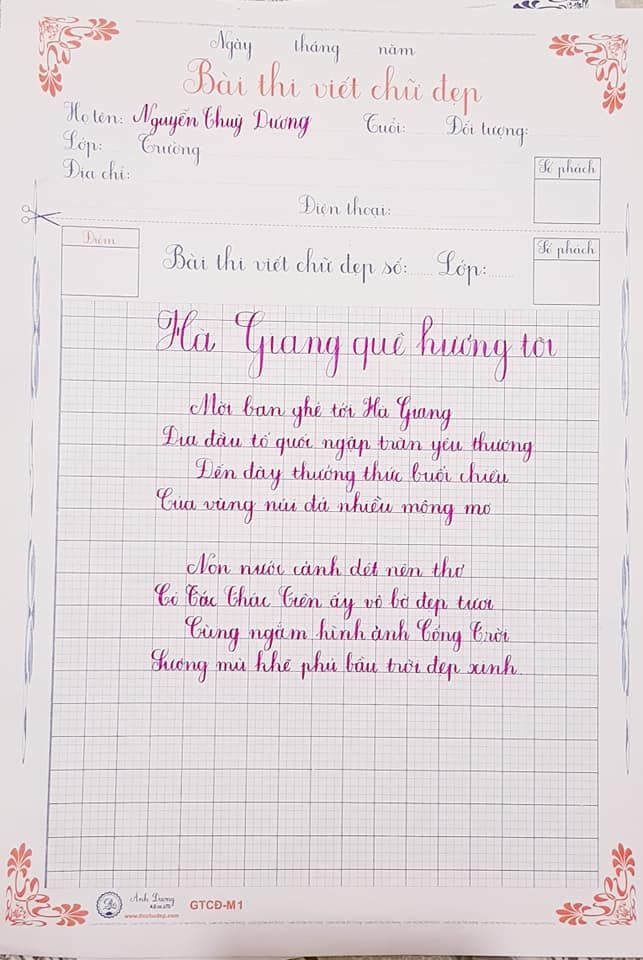 Ngày tháng năm
Bài thi viết chữ đẹp
Họ tên: Nguyễn Thuỳ Dương Tuổi: Đối tượng:
Lớp: Trường
Địa chỉ:
Số phách
Điện thoại:
Điểm
Bài thi viết chữ đẹp số: ...... Lớp: ......
Số phách
Hà Giang quê hương tôi
Mời bạn ghé tới Hà Giang
Địa đầu tổ quốc ngập tràn yêu thương
Đến đây thưởng thức buổi chiều
Của vùng núi đá nhiều mộng mơ
Non nước cảnh dệt nên thơ
Có Tác Thác Tiên ấy vô bờ đẹp tươi
Cùng ngắm hình ảnh Cổng Trời
Sương mù khẽ phủ bầu trời đẹp xinh
Ánh Dương
GTCĐ-M1